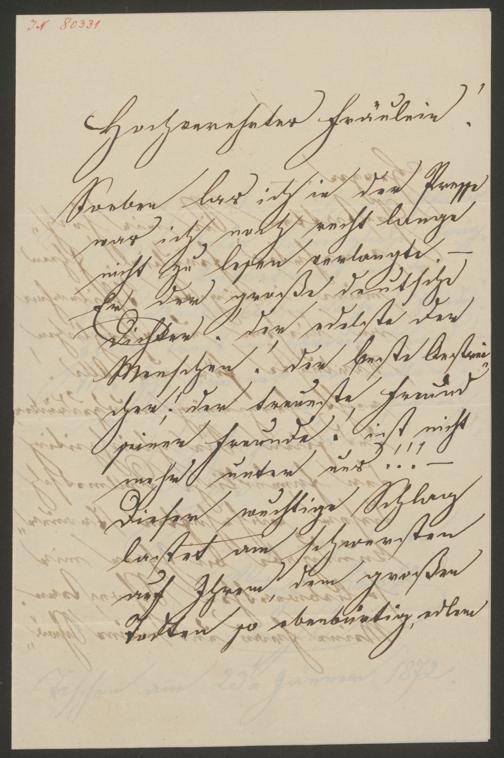 IN 80331
Hochverehrtes Fräulein!
Soeben las ich in der Presse
was ich noch recht lange
nicht zu lesen verlangte. —
Er, der große deutsche
Dichter, der edelste der
Menschen! der beste Oestrei-
cher! der treueste Freund
seiner Freunde, ist nicht
mehr unter uns!!! —
Dieser wuchtige Schlag
lastet am schwersten
auf Ihrem, dem großen
Todten so ebenbürtig, edlem
Teschen am 23. Jänner 1872.